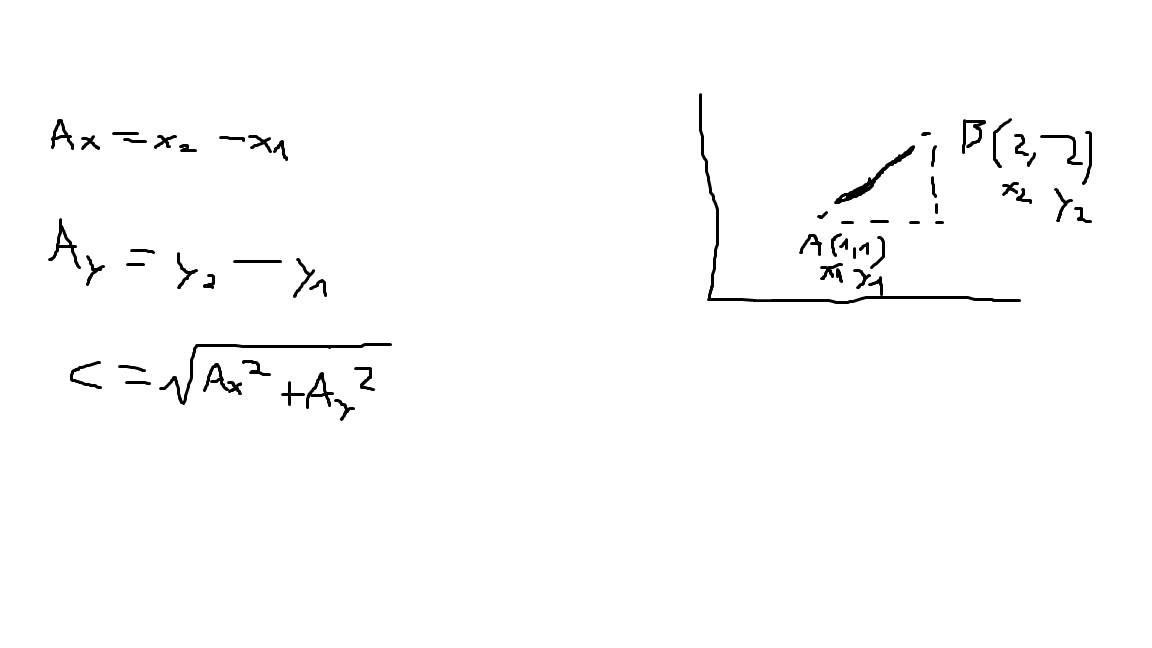 Ax = x₂ - x₁
Ay = y₂ - y₁
c = √Ax² + Ay²
B(2, 2)
x₂ y₂
A(1,1)
x₁ y₁